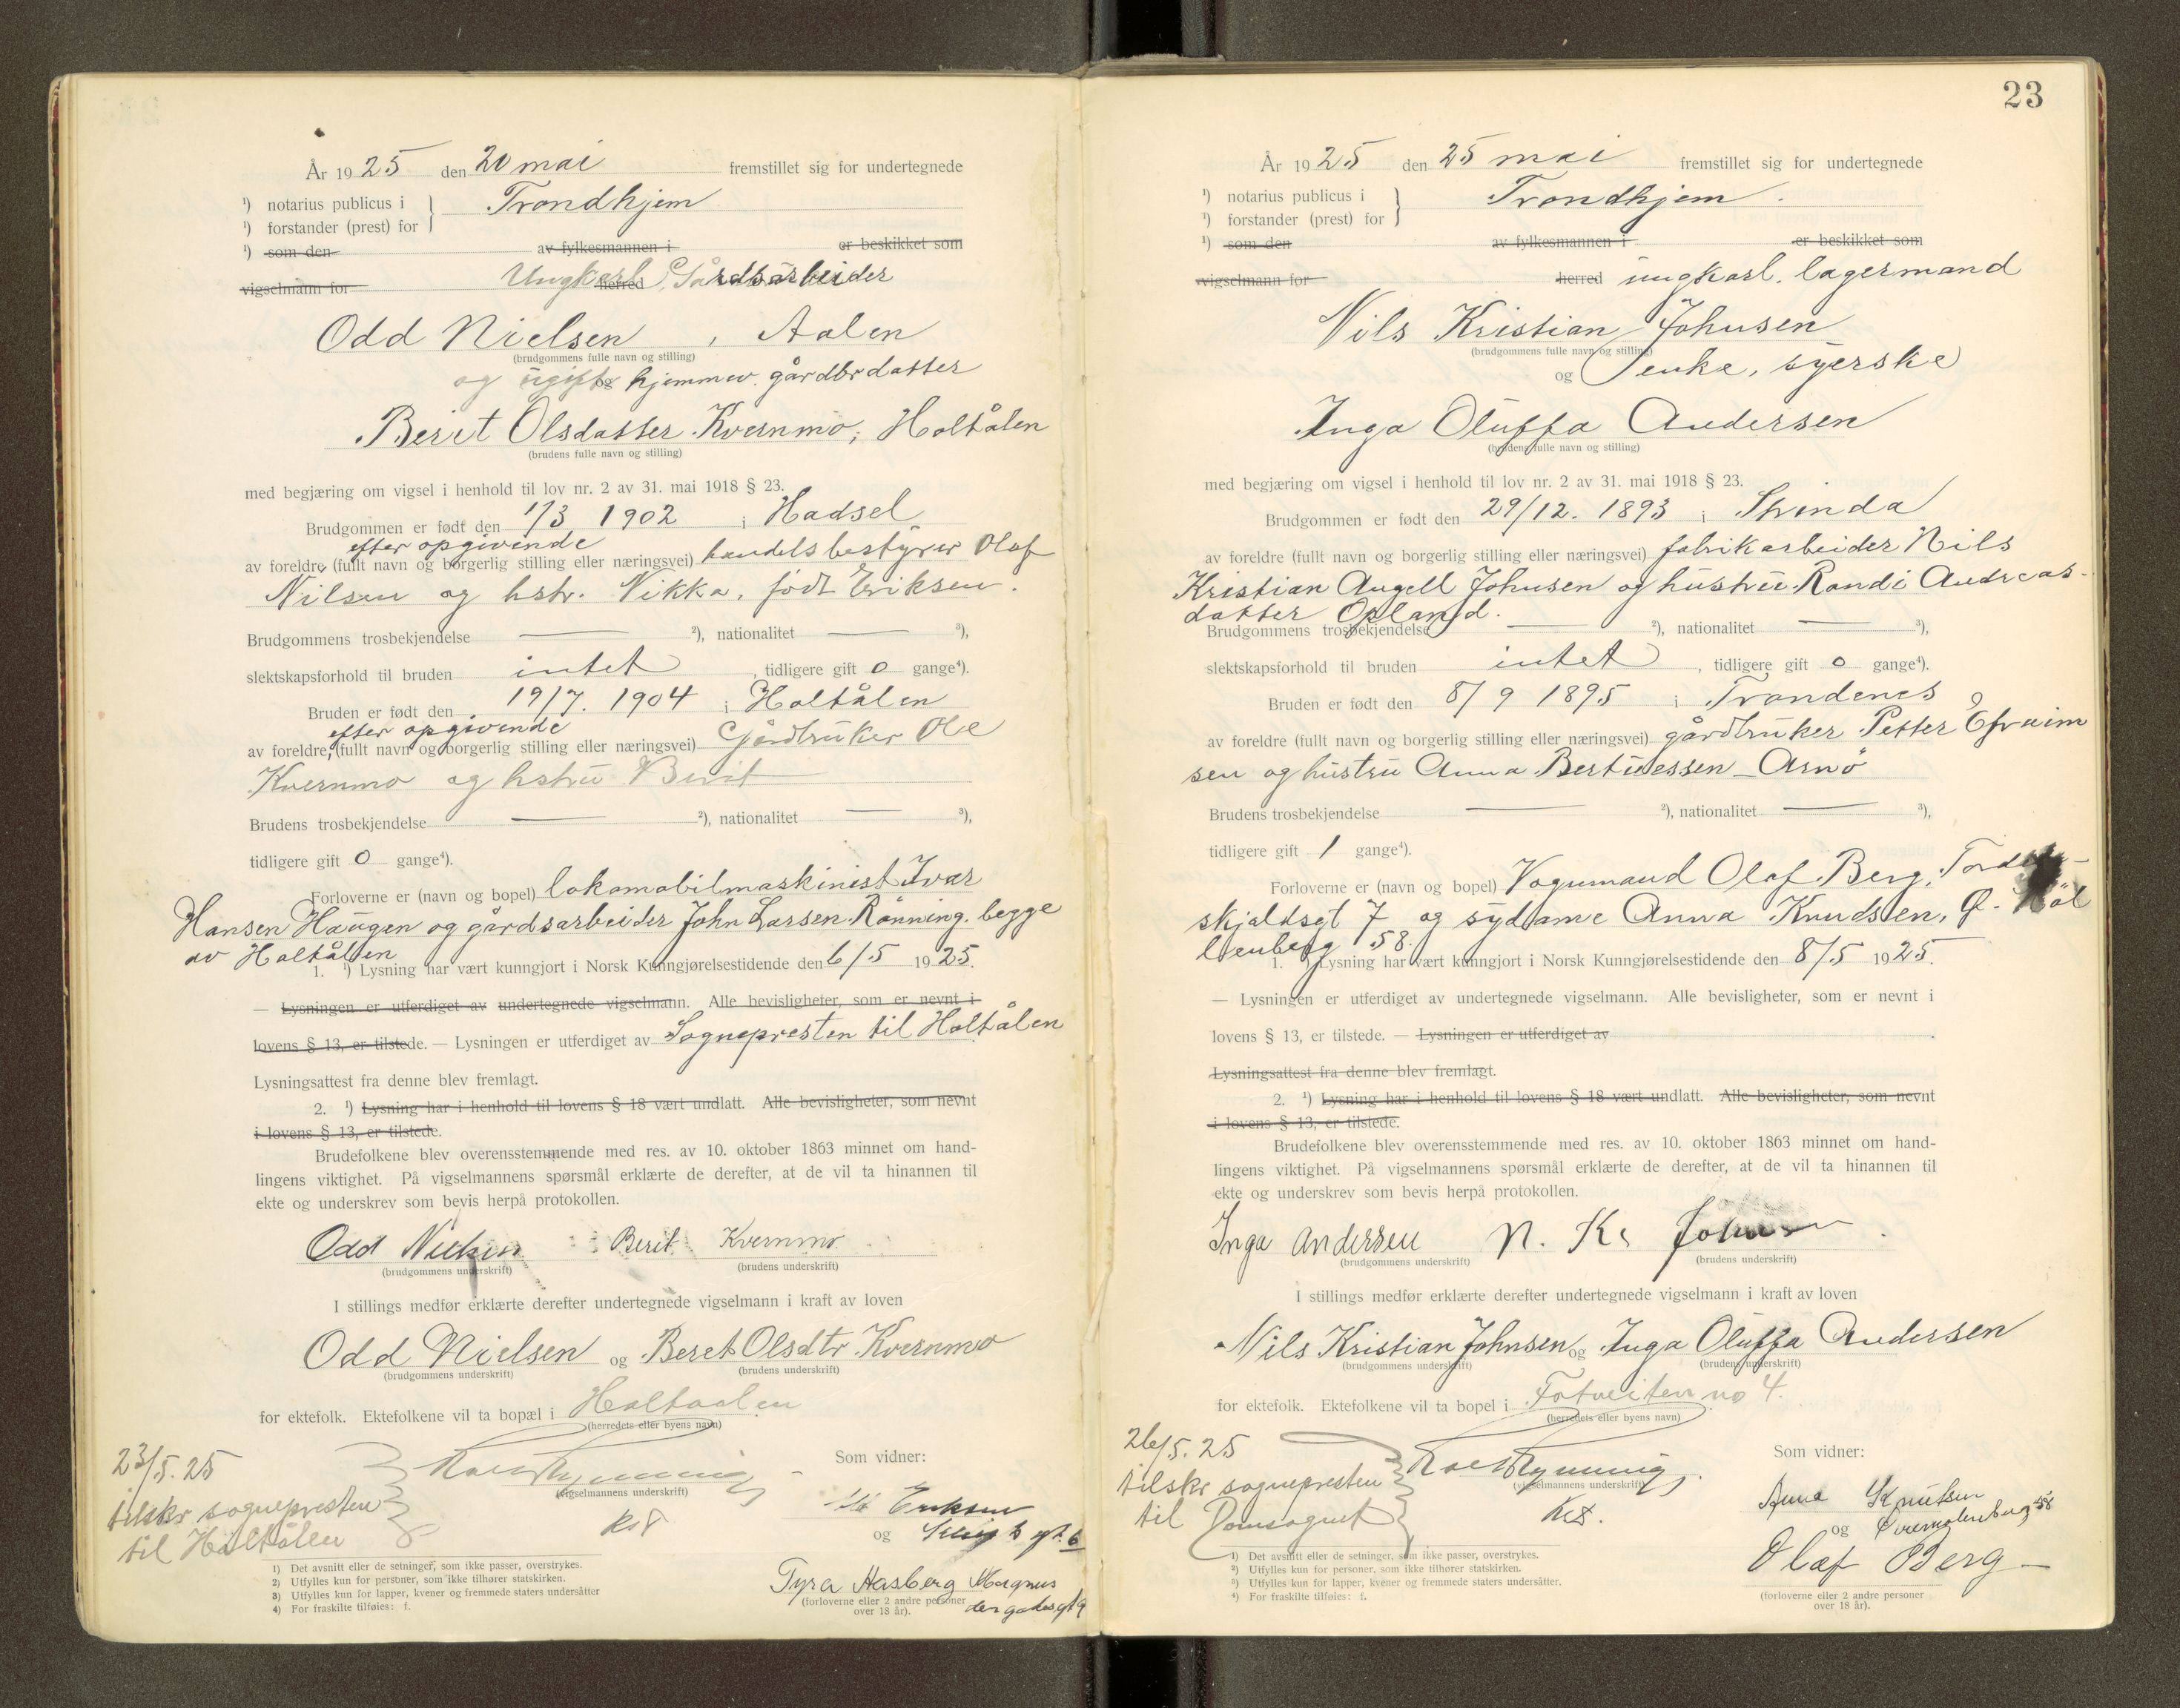 År 1925 den 20 mai fremstillet sig for undertegnede
¹) notarius publicus i
¹) forstander (prest) for } Trondhjem
¹) som den av fylkesmannen i er beskikket som
vigselmann for herred Ungkarl, Gårdsarbeider
Odd Nielsen, Aalen
(brudgommens fulle navn og stilling)
og ugift og hjemmev. gårdbrdatter
Berit Olsdatter Kvernmo, Holtålen
(brudens fulle navn og stilling)
med begjæring om vigsel i henhold til lov nr. 2 av 31. mai 1918 § 23.
Brudgommen er født den 1/3 1902 i Hadsel
efter opgivende
av foreldre (fullt navn og borgerlig stilling eller næringsvei) handelsbestyrer Olaf
Nilsen og hstr. Vikka, født Eriksen.
Brudgommens trosbekjendelse — ²), nationalitet — ³),
slektskapsforhold til bruden intet, tidligere gift 0 gange⁴).
Bruden er født den 19/7. 1904 i Holtålen
efter opgivende
av foreldre, (fullt navn og borgerlig stilling eller næringsvei) Gårdbruker Ole
Kvernmo og hstru Berit
Brudens trosbekjendelse — ²), nationalitet — ³),
tidligere gift 0 gange⁴).
Forloverne er (navn og bopel) lokomobilmaskinist Ivar
Hansen Haugen og gårdsarbeider John Larsen Rønning, begge
av Holtålen
1. ¹) Lysning har vært kunngjort i Norsk Kunngjørelsestidende den 6/5 1925.
— Lysningen er utferdiget av undertegnede vigselmann. Alle bevisligheter, som er nevnt i
lovens § 13, er tilstede. — Lysningen er utferdiget av Sognepresten til Holtålen
Lysningsattest fra denne blev fremlagt.
2. ¹) Lysning har i henhold til lovens § 18 vært undlatt. Alle bevisligheter, som nevnt
i lovens § 13, er tilstede.
Brudefolkene blev overensstemmende med res. av 10. oktober 1863 minnet om hand-
lingens viktighet. På vigselmannens spørsmål erklærte de derefter, at de vil ta hinannen til
ekte og underskrev som bevis herpå protokollen.
Odd Nielsen Berit Kvernmo
(brudgommens underskrift) (brudens underskrift)
I stillings medfør erklærte derefter undertegnede vigselmann i kraft av loven
Odd Nielsen og Beret Olsdtr Kvernmo
(brudgommens underskrift) (brudens underskrift)
for ektefolk. Ektefolkene vil ta bopæl i Holtaalen
(herredets eller byens navn)
23/5.25
tilskr sognepresten
til Holtålen
(vigselmannens underskrift)
Som vidner:
Eriksen
og
Tyra Aasberg Magnus
den godes gt 9
(forloverne eller 2 andre personer
over 18 år).
1) Det avsnitt eller de setninger, som ikke passer, overstrykes.
2) Utfylles kun for personer, som ikke tilhører statskirken.
3) Utfylles kun for lapper, kvener og fremmede staters undersåtter
4) For fraskilte tilføies: f.
23
År 1925 den 25 mai fremstillet sig for undertegnede
¹) notarius publicus i
¹) forstander (prest) for } Trondhjem.
¹) som den av fylkesmannen i er beskikket som
vigselmann for herred ungkarl, lagermand
Nils Kristian Johnsen
(brudgommens fulle navn og stilling)
og enke, syerske
Inga Oluffa Andersen
(brudens fulle navn og stilling)
med begjæring om vigsel i henhold til lov nr. 2 av 31. mai 1918 § 23.
Brudgommen er født den 29/12. 1893 i Strinda
av foreldre (fullt navn og borgerlig stilling eller næringsvei) fabrikarbeider Nils
Kristian Angell Johnsen og hustru Randi Andreas-
datter Opland.
Brudgommens trosbekjendelse — ²), nationalitet — ³),
slektskapsforhold til bruden intet, tidligere gift 0 gange⁴).
Bruden er født den 8/9 1895 i Trondenes
av foreldre (fullt navn og borgerlig stilling eller næringsvei) gårdbruker Petter Efraim
sen og hustru Anna Bertinessen – Arnö
Brudens trosbekjendelse — ²), nationalitet — ³),
tidligere gift 1 gange⁴).
Forloverne er (navn og bopel) Vognmand Olaf Berg, Torden-
skjoldsgt 7 og sydame Anna Knudsen, Ø. Möl
lenberg 58.
1. ¹) Lysning har vært kunngjort i Norsk Kunngjørelsestidende den 8/5 1925.
— Lysningen er utferdiget av undertegnede vigselmann. Alle bevisligheter, som er nevnt i
lovens § 13, er tilstede. — Lysningen er utferdiget av
Lysningsattest fra denne blev fremlagt.
2. ¹) Lysning har i henhold til lovens § 18 vært undlatt. Alle bevisligheter, som nevnt
i lovens § 13, er tilstede.
Brudefolkene blev overensstemmende med res. av 10. oktober 1863 minnet om hand-
lingens viktighet. På vigselmannens spørsmål erklærte de derefter, at de vil ta hinannen til
ekte og underskrev som bevis herpå protokollen.
Inga Andersen N. Kr Johnsen
(brudgommens underskrift) (brudens underskrift)
I stillings medfør erklærte derefter undertegnede vigselmann i kraft av loven
Nils Kristian Johnsen og Inga Oluffa Andersen
(brudgommens underskrift) (brudens underskrift)
for ektefolk. Ektefolkene vil ta bopel i Fotveiten no 4.
(herredets eller byens navn)
26/5.25
tilskr sognepresten
til Domsognet
(vigselmannens underskrift)
Kst.
Som vidner:
Anna Knutsen
og Øvremølenberg 58
Olaf Berg
(forloverne eller 2 andre personer
over 18 år).
¹) Det avsnitt eller de setninger, som ikke passer, overstrykes.
²) Utfylles kun for personer, som ikke tilhører statskirken.
³) Utfylles kun for lapper, kvener og fremmede staters undersåtter.
⁴) For fraskilte tilføies: f.